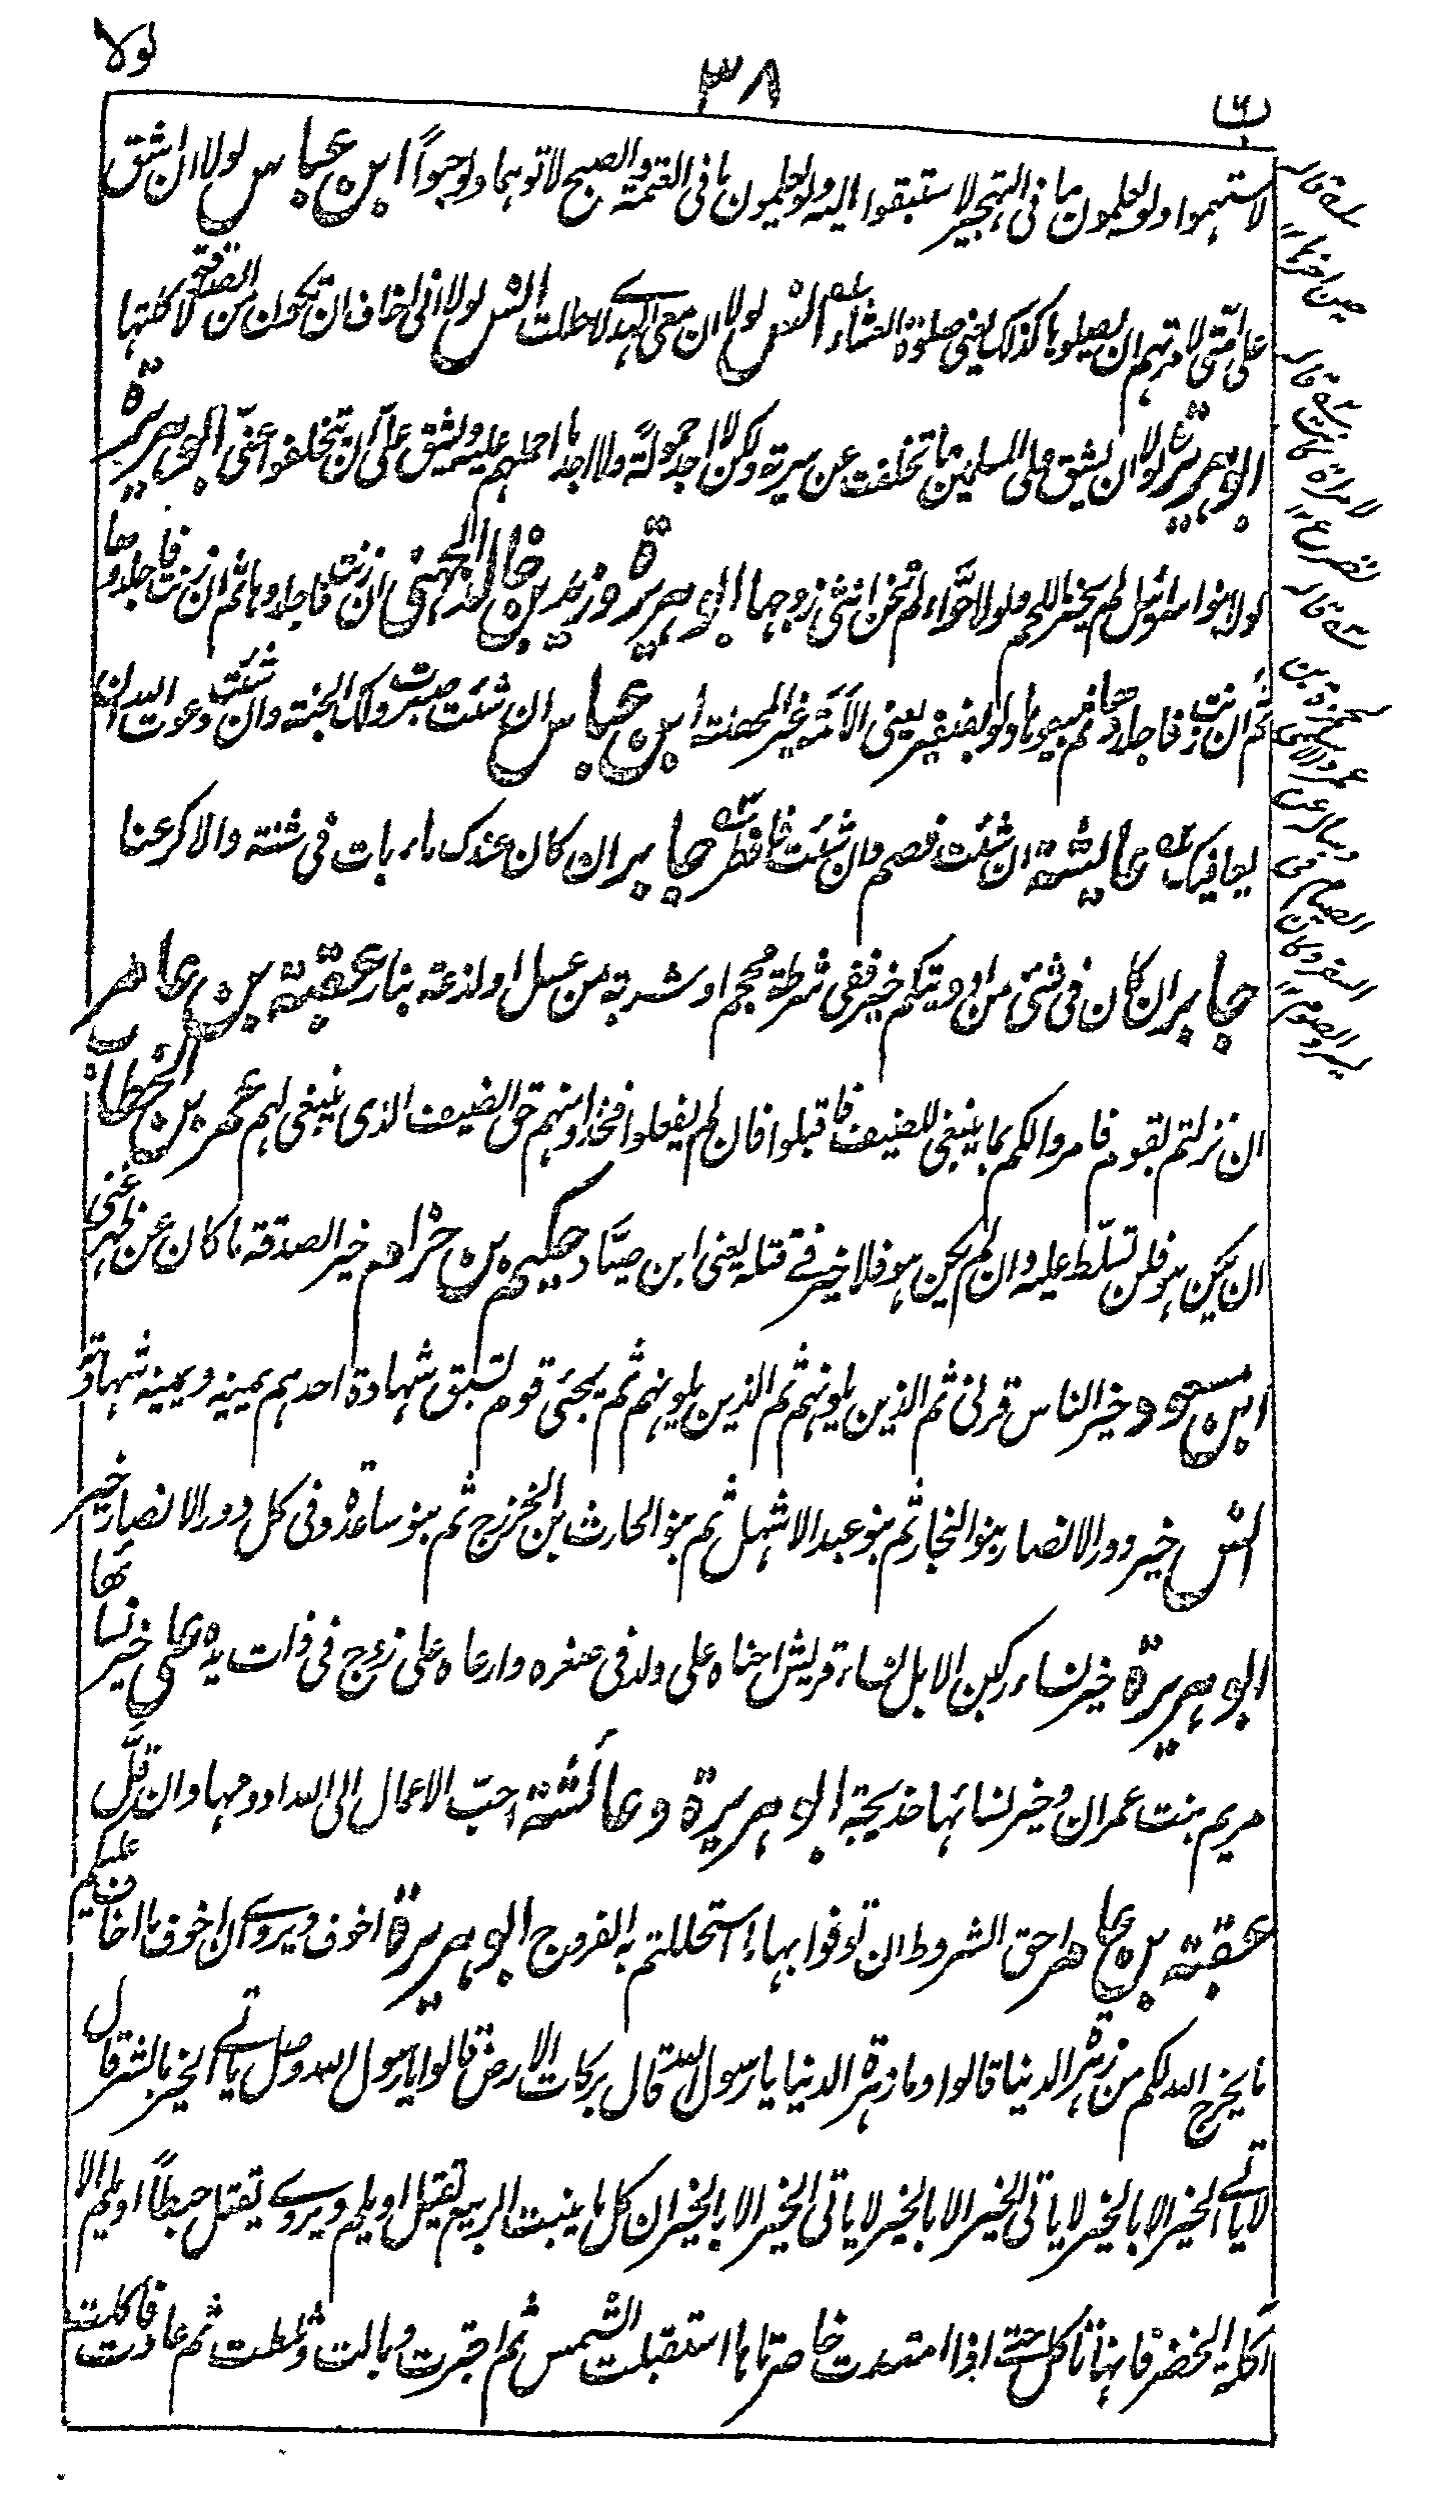 لولا
٣٨
لاستهموا ولو يعلمون ما فى التهجير لاستبقوا اليه ولو يعلمون ما فى العتمة والصبح لاتوهما ولو حبواً ابن عباس لولا ان اشق
على امتى لامرتهم ان يصلوها كذلك يعنى صلوة العشاء انس لولا ان معى الهدى لاحللت انس لولا انى اخاف ان تكون من الصدقة لاكلتها
ابو هريرة لولا ان يشق على المسلمين ما تخلفت عن سرية ولكن لا اجد حمولة ولا اجد ما احملهم عليه ويشق علىّ ان يتخلفوا عنّى ابو هريرة
لولا بنوا اسرائيل لم يخنز اللحم ولولا حوّاء لم تخن انثى زوجها ابو هريرة وزيد بن خالد الجهنى ان زنت فاجلدوها ثم ان زنت فاجلدوها
ثم ان زنت فاجلدوها ثم بيعوها ولو بضفير يعنى الأمة غير المحصنة ابن عباس ان شئت صبرت ولك الجنة وان شئت دعوت الله ان
يعافيك عايشة ان شئت فصم وان شئت فافطر جابر ان كان عندك ماء بات فى شنة والا كرعنا
جابر ان كان فى شئ من ادويتكم خير ففى شرطة محجم او شربة من عسل او لذعة بنار عقبة بن عامر
ان نزلتم بقوم فامروا لكم بما ينبغى للضيف فاقبلوا فان لم يفعلوا فخذوا منهم حق الضيف الذى ينبغى لهم عمر بن الخطاب
ان يكن هو فلن تسلّط عليه وان لم يكن هو فلا خير فے قتله يعنى ابن صيّاد حكيم بن حزام خير الصدقة ما كان عن ظهر غنى
ابن مسعود خير الناس قرنى ثم الذين يلونهم ثم الذين يلونهم ثم يجئ قوم تسبق شهادة احدهم يمينه ويمينه شهادته
انس خير دور الانصار بنو النجار ثم بنو عبد الاشهل ثم بنو الحارث بن الخزرج ثم بنو ساعدة وفى كل دور الانصار خير
ابو هريرة خير نساء ركبن الابل نساء قريش احناه على ولد فى صغره وارعاه على زوج فى ذات يده على خير نسائها
مريم بنت عمران وخير نسائها خديجة ابو هريرة وعائشة احبّ الاعمال الى الله ادومها وان قلّ
عقبة بن عامر احق الشروط ان توفوا بها ما استحللتم به الفروج ابو هريرة اخوف ويروے ان اخوف ما اخاف عليكم
ما يخرج الله لكم من زهرة الدنيا قالوا وما زهرة الدنيا يا رسول الله قال بركات الارض قالوا يا رسول الله وهل ياتے الخير بالشر قال
لا ياتے الخير الا بالخير لا ياتى الخير الا بالخير لا ياتى الخير الا بالخير ان كل ما ينبت الربيع يقتل او يلم ويروے يقتل حبطاً او يلم الا
آكلة الخضر فانها تاكل حتے اذا امتدت خاصرتاها استقبلت الشمس ثم اجترت وبالت وثلطت ثم عادت فاكلت